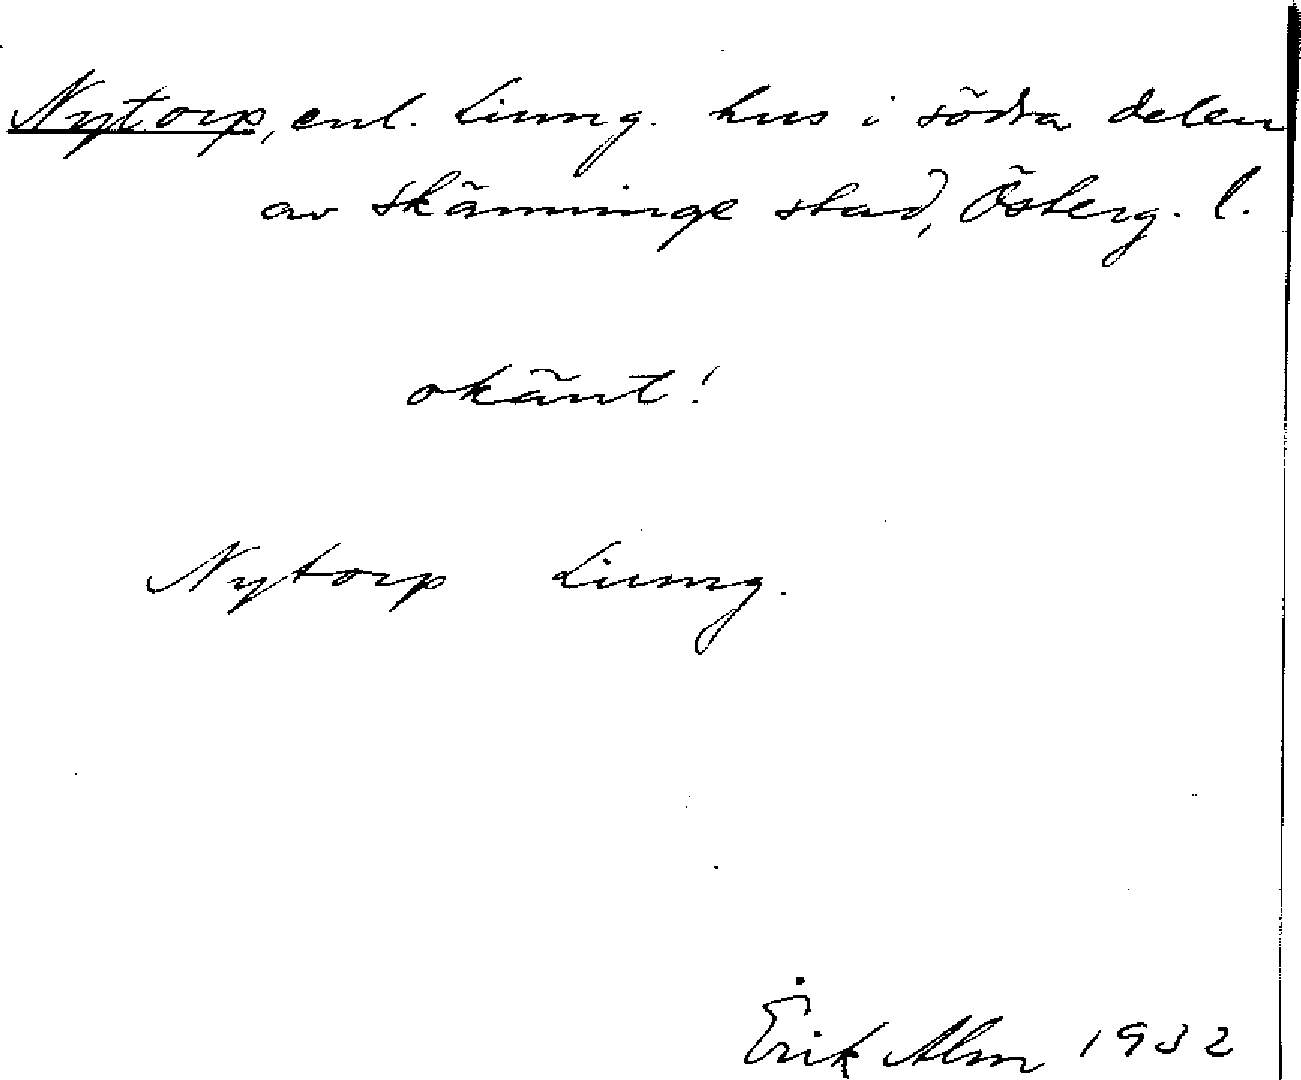 Nytorp, enl. Ljung. hus i södra delen
av Skänninge stad, Österg. l.
okänt!
Nytorp Ljung.
Erik Alm 1932